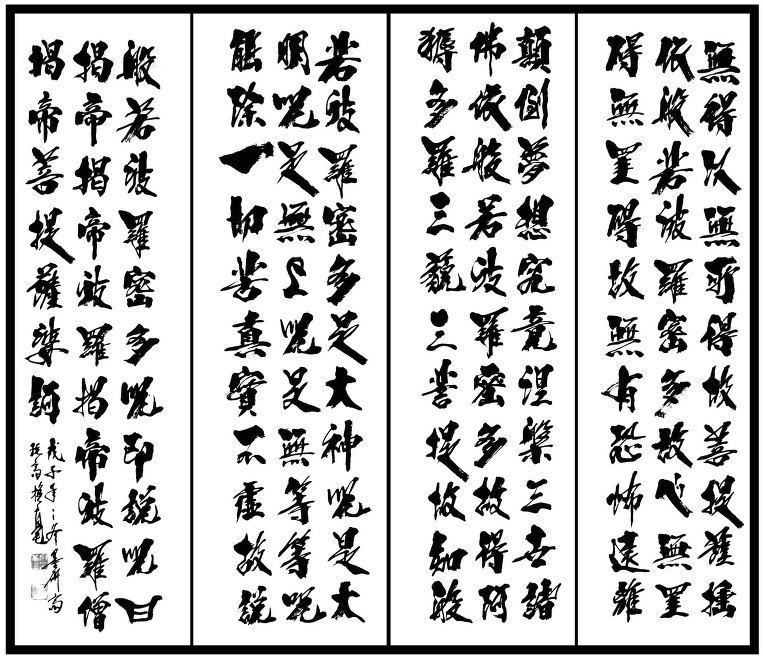 無得以無所得故菩提薩埵
依般若波羅密多故心無罣
碍無罣碍故無有恐怖遠離
顛倒夢想究竟涅槃三世諸
佛依般若波羅密多故得阿
耨多羅三藐三菩提故知般
若波羅密多是大神呪是大
明呪是無上呪是無等等呪
能除一切苦真實不虛故說
般若波羅密多呪即說呪曰
揭帝揭帝波羅揭帝波羅僧
揭帝菩提薩婆訶
戊子年之冬